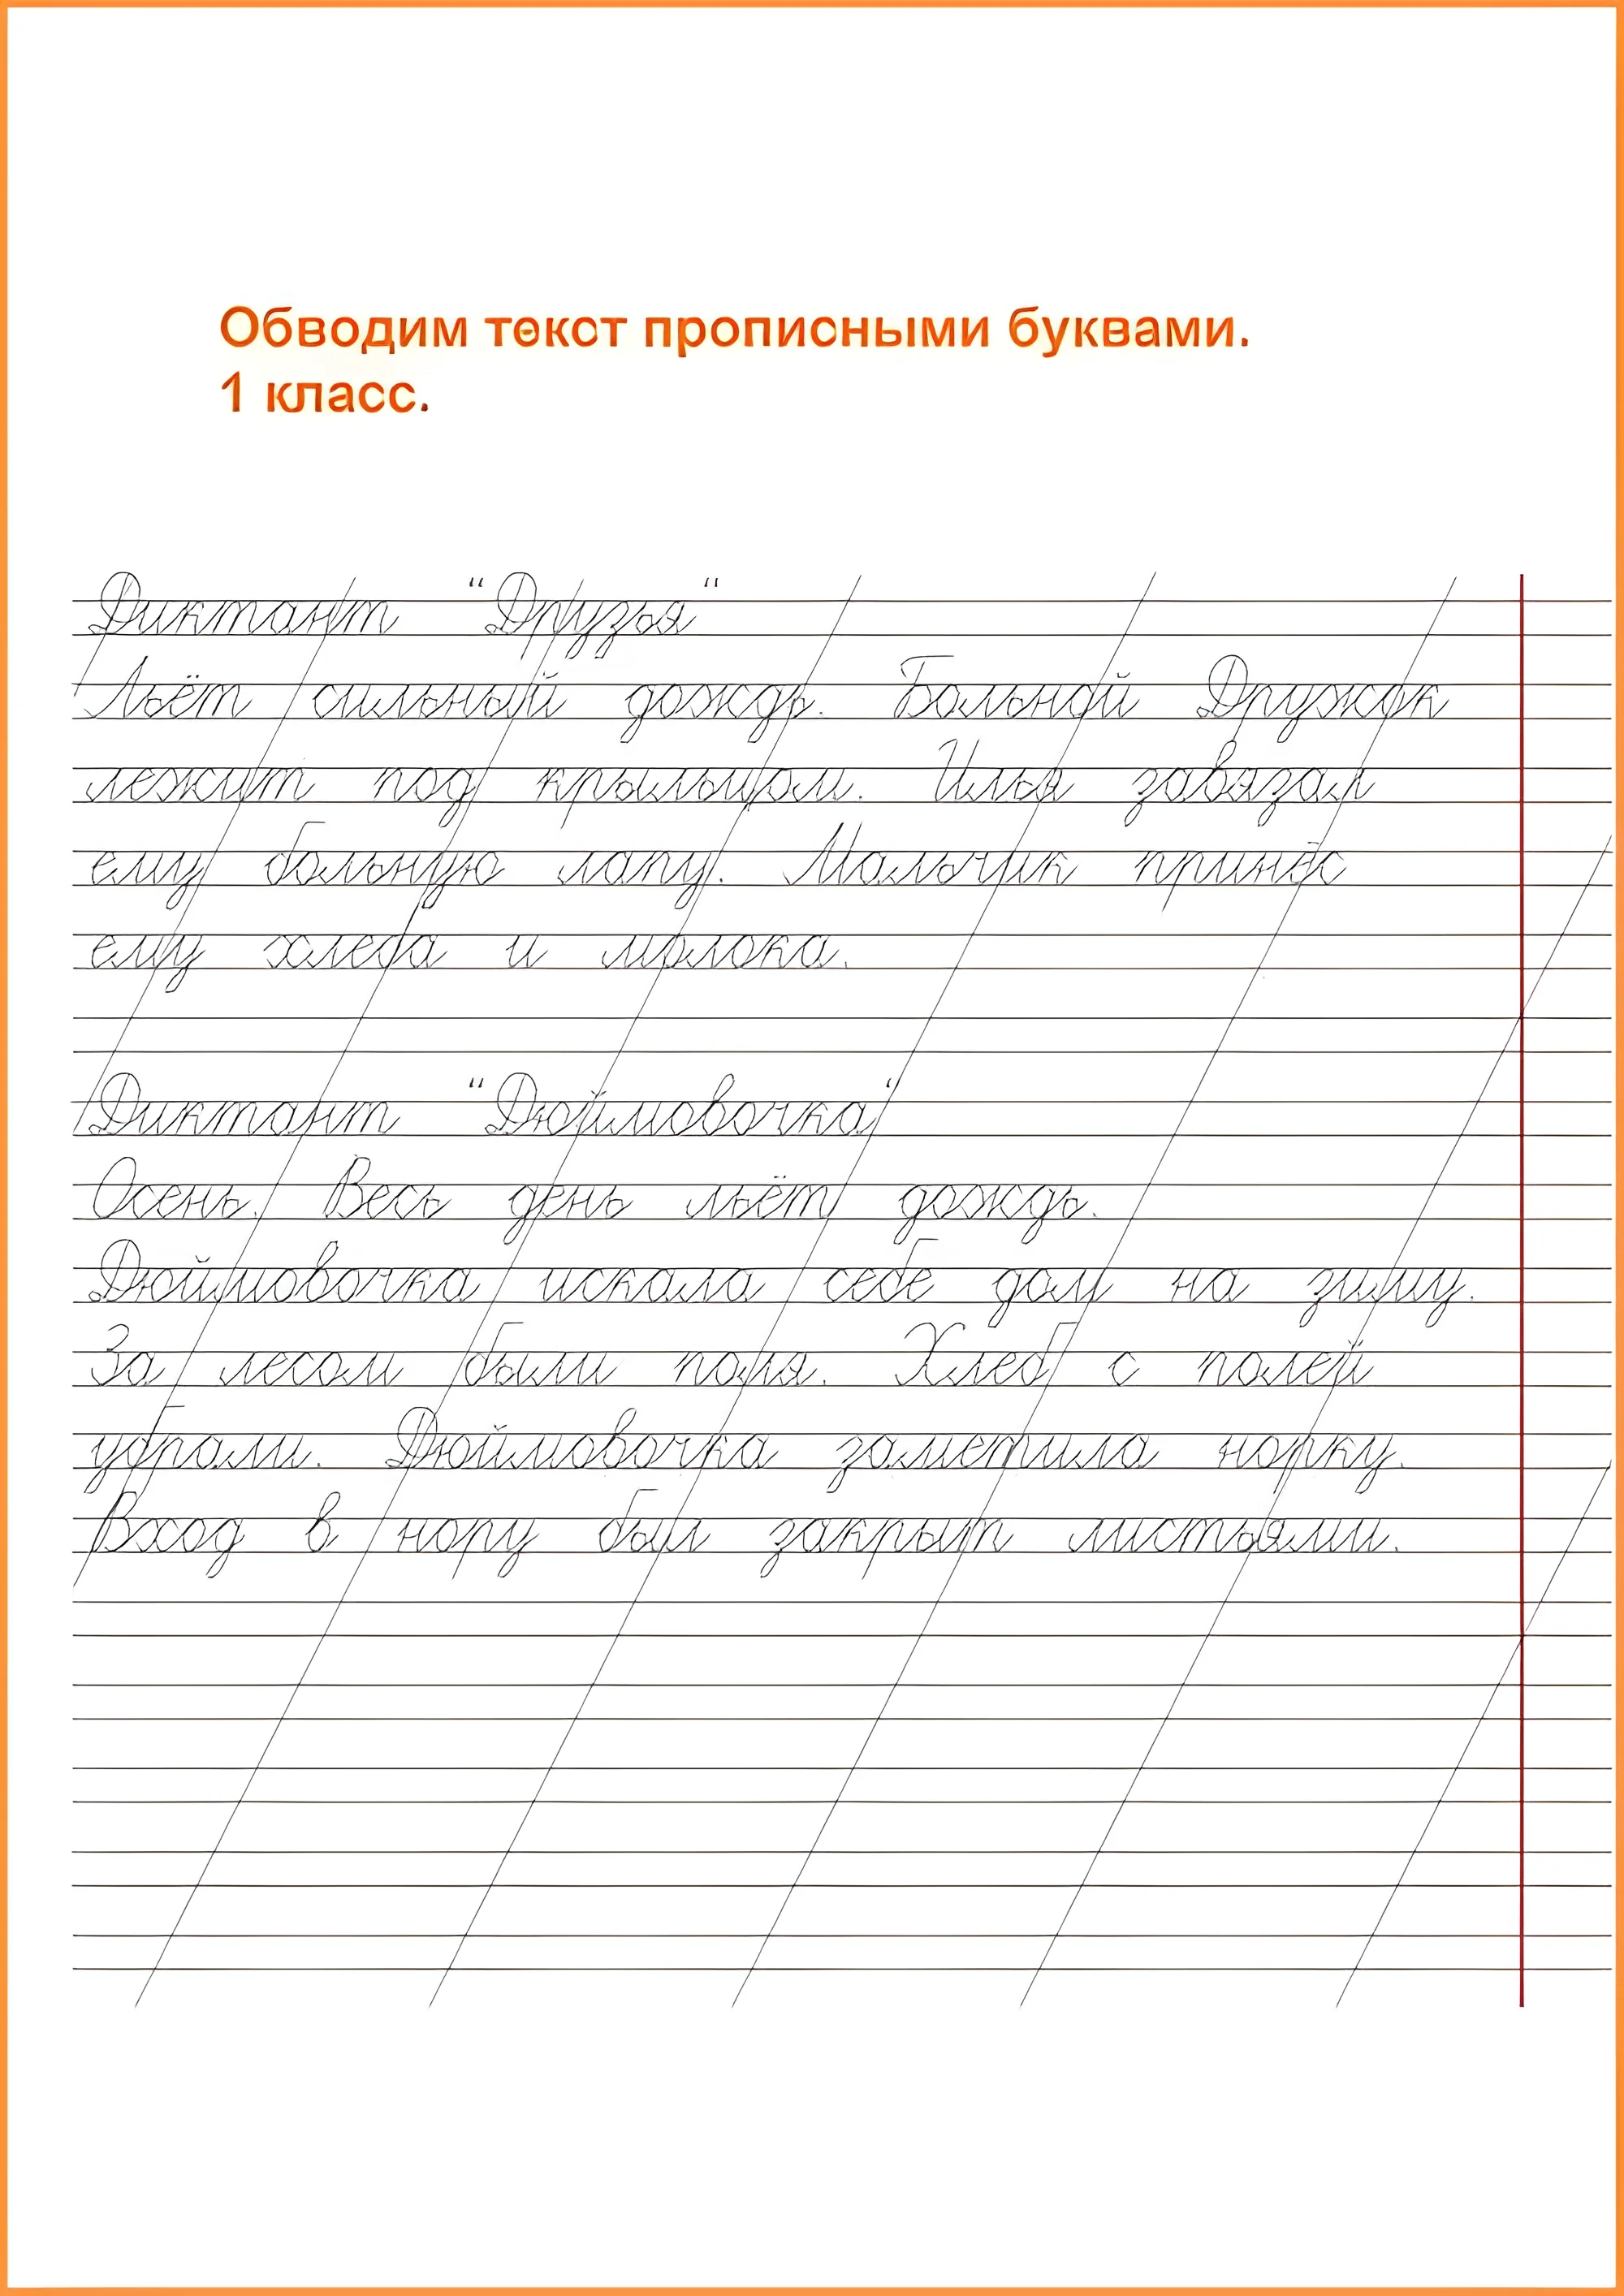 Обводим текст прописными буквами.
1 класс.
Диктант “Друзья“
Льёт сильный дождь. Больной Дружок
лежит под крыльцом. Илья завязал
ему больную лапу. Мальчик принёс
ему хлеба и молока.
Диктант “Дюймовочка“
Осень. Весь день льёт дождь.
Дюймовочка искала себе дом на зиму.
За лесом были поля. Хлеб с полей
убрали. Дюймовочка заметила норку.
Вход в нору был закрыт листьями.